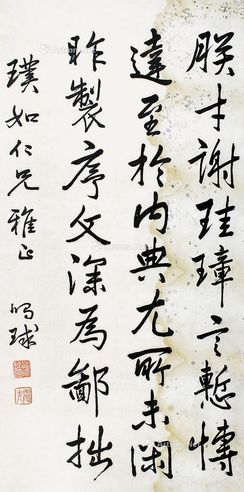 朕才謝珪璋言慙博
達至於內典尤所未閑
昨製序文深為鄙拙
璞如仁兄雅正 鳴球